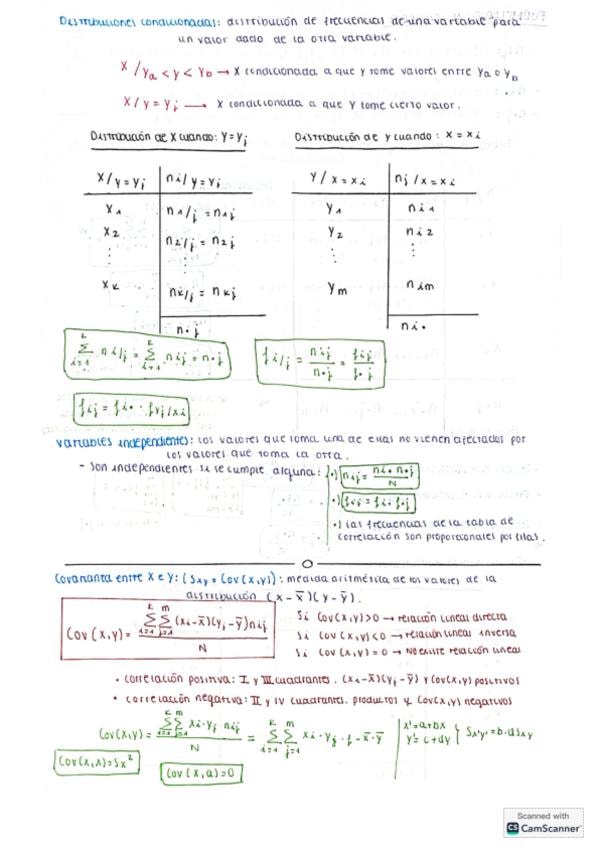 Distribuciones condicionadas: distribución de frecuencias de una variable para
un valor dado de la otra variable.
X / ya < y < yb → X condicionada a que y tome valores entre ya o yb
X / y = yj → X condicionada a que Y tome cierto valor.
Distribución de X cuando: Y = yj
X / y = yj | ni / y = yj
x1 | n1/j = n1j
x2 | n2/j = n2j
⋮ | ⋮
xk | nk/j = nkj
n•j
Distribución de y cuando: X = xi
Y / x = xi | nj / x = xi
y1 | ni1
y2 | ni2
⋮ | ⋮
ym | nim
ni•
k∑i=1 ni/j = k∑i=1 nij = n•j
fi/j = nij / n•j = fij / f•j
fij = fi• · fyj/xi
Variables independientes: los valores que toma una de ellas no vienen afectados por
los valores que toma la otra.
- Son independientes si se cumple alguna: •) nij = ni• n•j / N
•) fij = fi• f•j
•) las frecuencias de la tabla de
correlación son proporcionales por filas.
Covarianza entre X e Y: (Sxy = Cov(x,y)): media aritmética de los valores de la
distribución (x - x̄)(y - ȳ).
Cov(x,y) = k∑i=1 m∑j=1 (xi - x̄)(yj - ȳ) nij / N
Si Cov(x,y) > 0 → relación lineal directa
Si Cov(x,y) < 0 → relación lineal inversa
Si Cov(x,y) = 0 → No existe relación lineal
• correlación positiva: I y III cuadrantes. (xi - x̄)(yj - ȳ) y Cov(x,y) positivos
• correlación negativa: II y IV cuadrantes. productos y Cov(x,y) negativos
Cov(x,y) = k∑i=1 m∑j=1 xi · yj nij / N = k∑i=1 m∑j=1 xi · yj · f - x̄ · ȳ | x' = a + bx
y' = c + dy } Sx'y' = b · d Sxy
Cov(x,x) = Sx²
Cov(x,a) = 0
Scanned with
CS CamScanner